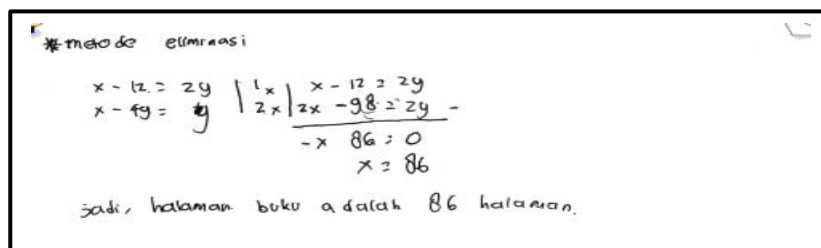 * metode eliminasi
x - 12 = 2y | 1x | x - 12 = 2y
x - 49 = y | 2x | 2x - 98 = 2y -
-x 86 = 0
x = 86
jadi, halaman buku adalah 86 halaman.